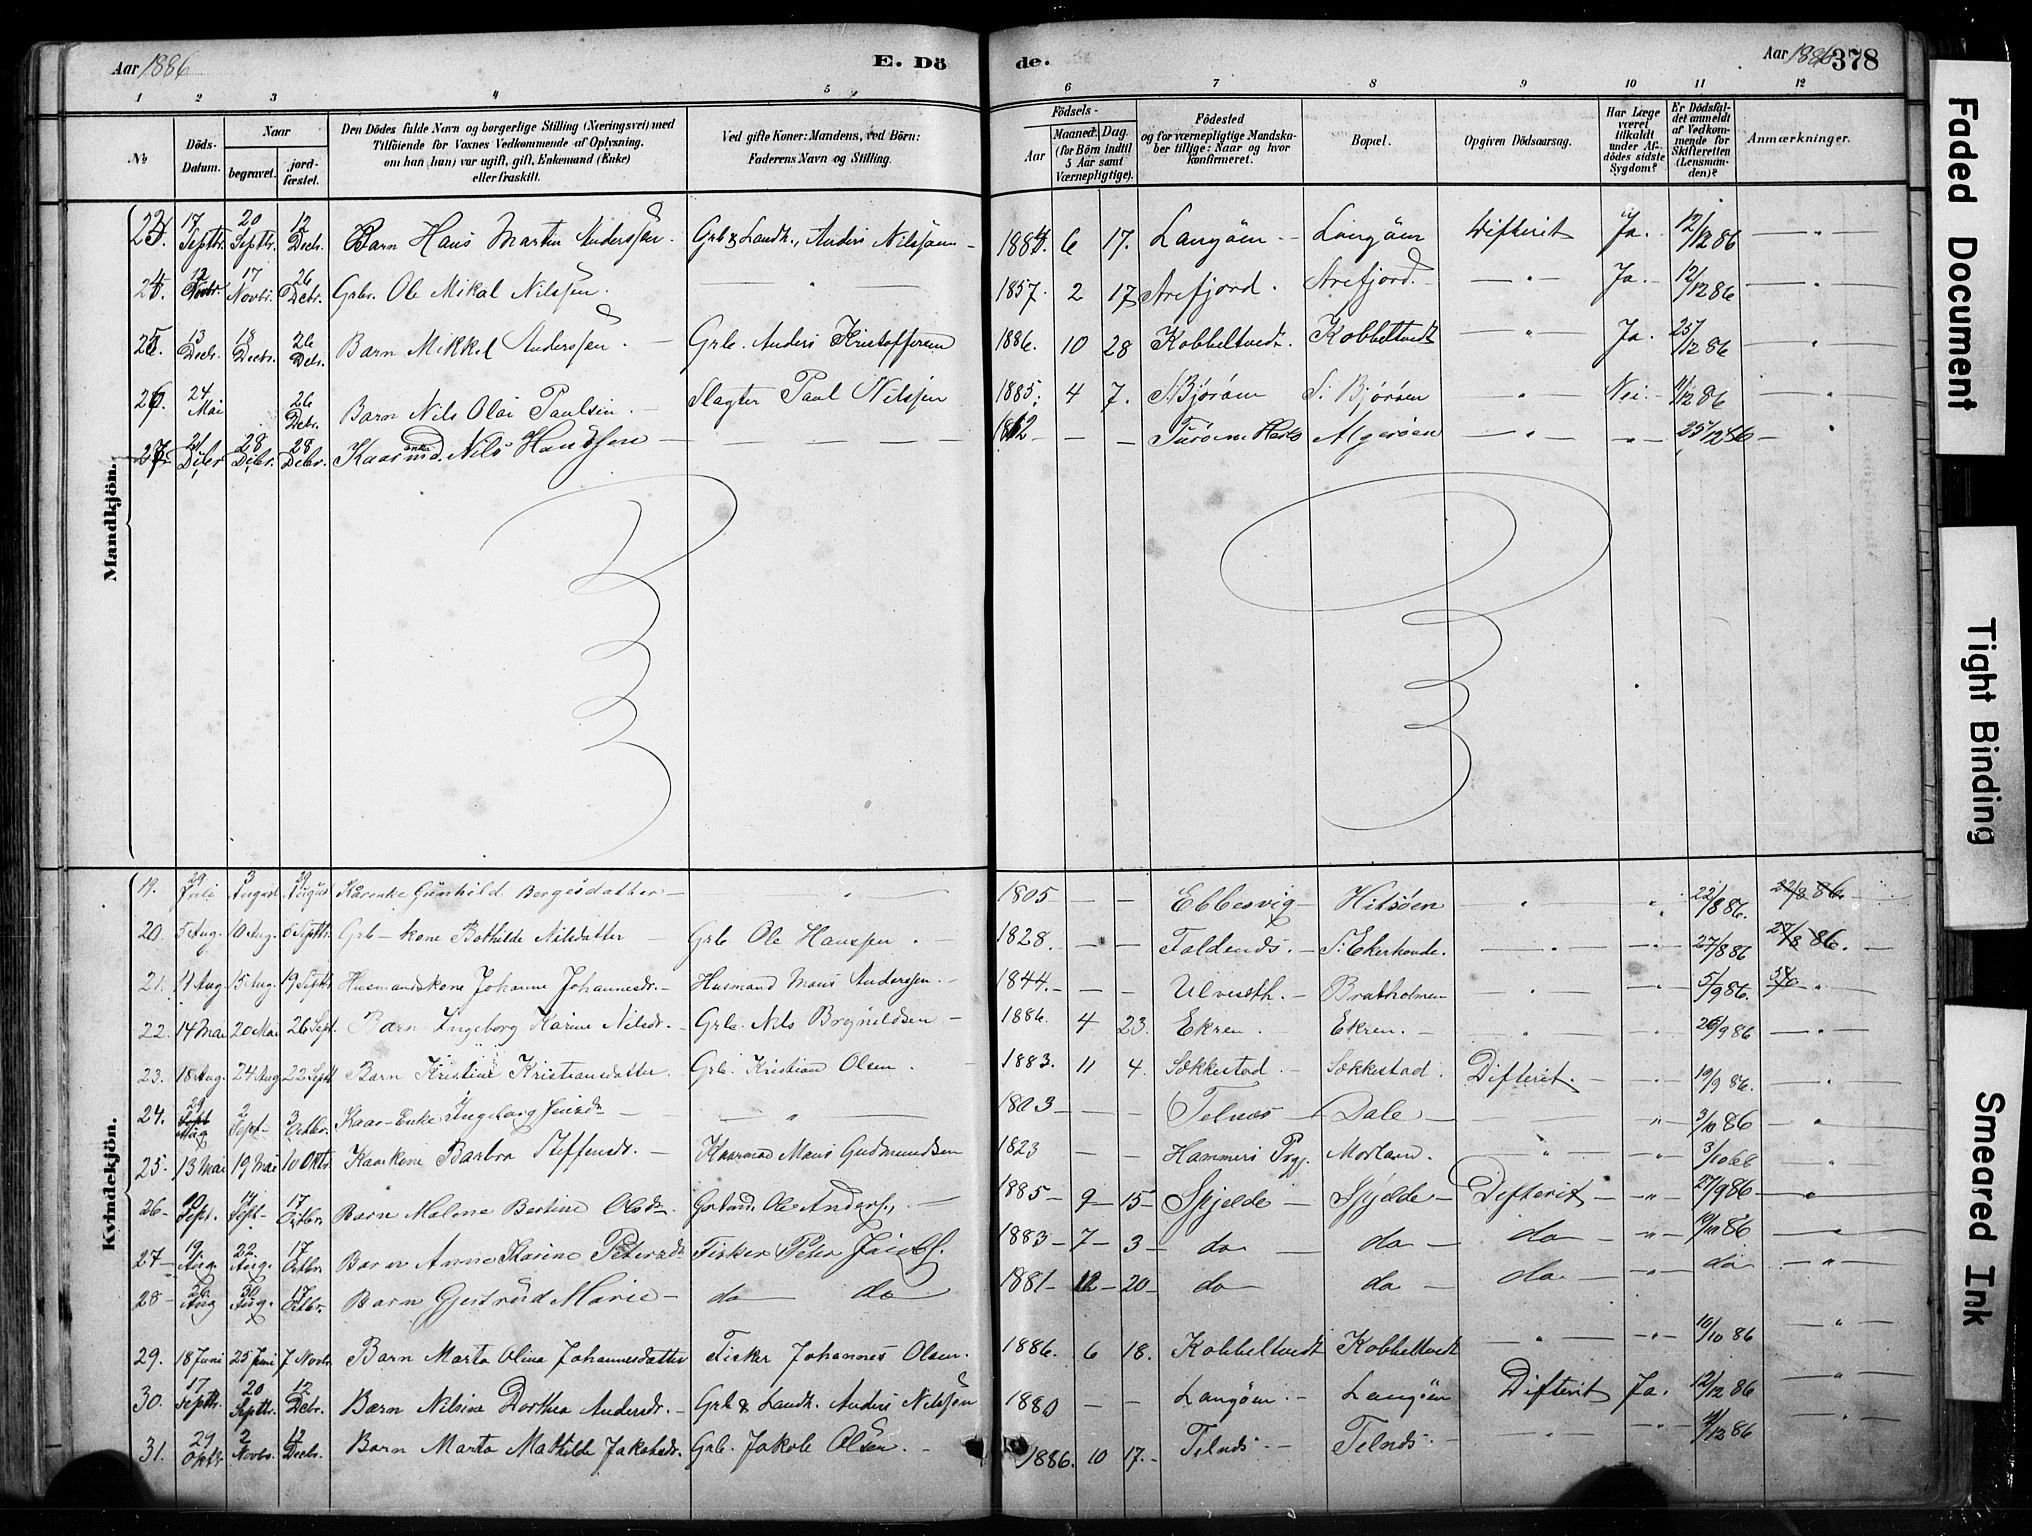 Aar 1886 E. Dö de. Aar 1886 378
1 2 3 4 5 6 7 8 9 10 11 12
No Döds-Datum. Naar begravet. jord-fæstet. Den Dödes fulde Navn og borgerlige Stilling (Næringsvei) med Tilföiende for Voxnes Vedkommende af Oplysning. om han (hun) var ugift, gift, Enkemand (Enke) eller fraskilt. Ved gifte Koner: Mandens, ved Börn: Faderens Navn og Stilling. Födsels- Aar Maaned. Dag (for Börn indtil 5 Aar samt Værnepligtige). Födested og for værnepligtige Mandskaber tillige: Naar og hvor konfirmeret. Bopæl. Opgiven Dödsaarsag. Har Læge været tilkaldt under Afdödes sidste Sygdom? Er Dödsfaldet anmeldt af Vedkommende for Skifteretten (Lensmanden)? Anmærkninger.
Mandkjön.
23. 17 Septbr. 20 Septbr. 12 Decbr. Barn Hans Martin Anderssen. Grb & Landh., Anders Nilssen 1884. 6 17. Langöen Langöen Difterit Ja. 12/12 86 "
24. 12 Novbr. 17 Novbr. 26 Debr. Grbr. Ole Mikal Nilssen. " 1857. 2 17 Arefjord. Arefjord. " Ja. 12/12 86 "
25. 13 Decbr. 18 Decbr. 26 Debr. Barn Mikkel Anderssen. Grb. Anders Kristoffersen 1886. 10 28 Kobbeltvedt. Kobbeltvedt " Ja. 25/12 86 "
26. 24 Mai 26 Debr. Barn Nils Olai Paulsen. Slagter Paul Nilssen 1885. 4 7. S. Björöen S. Björöen " Nei. 11/12 86 "
27 21 Debr 28 Debr. 28 Debr. Kaarenkemd. Nils Hanssen 18 2 Algeröen " " 25/12 86 "
Kvindekjön.
19. 29 Juli 3 August 29 August Kårenke Gunhild Borgesdatter " 1805 Ebbesvig Hitsöen " " 22/8 86. 22/8 86.
20. 5 Aug. 10 Aug. 5 Septbr. Grb-kone Bothilde Nilsdatter Grb. Ole Hanssen. 1828. Foldends. S. Ekerhovde. " 27/8 86 27/8 86.
21. 11 Aug. 15 Aug. 19 Septbr Husmandskone Johanne Johannesdr. Husmand Mons Anderssen. 1844. Ulveseth. Bratholmen " " 5/9 86. "
22. 14 Mai 20 Mai 26 Sept. Barn Ingeborg Karine Nilsdr. Grb. Nils Brynildsen 1886. 4 23. Ekren. Ekren. " " 26/9 86 "
23. 18 Aug. 24 Aug 22 Septbr Barn Kristine Kristiansdatter. Grb. Kristian Olsen. 1883. 11 4. Sækkestad. Sækkestad. Difterit. " 19/9 86. "
24. 29 Sept Aug 2 Sept 3 Octbr. Kaar-Enke Ingeborg Jensdr " 1803 Telnæs Dale " 3/10 86 "
25. 13 Mai 19 Mai 10 Oktb. Kaarkone Barbro Steffensdr. Kaarmand Mons Gudmundsen 1823 Hammers Prgj. Morland. " " 3/10 86 "
26 10 Sept. 14 Sept 17 Octbr Barn Malene Bertine Olsdr. Ole Anders., 1885 9 15 Spjelde Spjelde Difterit " 27/9 86 "
27 19 Aug. 22. Aug. 17 Octbr. Barn Anne Karine Petersdr Fisker Peter Jacobs. 1883 7 3 do do do " 10/10 86 "
28 26 Aug 30 Aug. 17 Octbr. Barn Gjertrud Marie do do 1881 12 20 do do do " do "
29. 18 Juni 25 Juni 7 Novbr. Barn Marta Olina Johannesdatter Fisker Johannes Olsen. 1886. 6 18. Kobbeltvedt Kobbeltvedt " " 10/10 86 "
30. 17 Septbr. 20 Septbr. 12 Debr. Barn Nilsine Dorthea Andersdr. Grb & Landh. Anders Nilssen 1880 Langöen. Langöen Difterit Ja. 12/12 86 "
31. 29 Oktbr 2 Novbr. 12 Decbr. Barn Marta Mathilde Jakobsdr. Grb. Jakob Olsen. 1886. 10 17. Telnæs. Telnæs. " " 11/12 86 "
Faded Document
Tight Binding
Smeared Ink